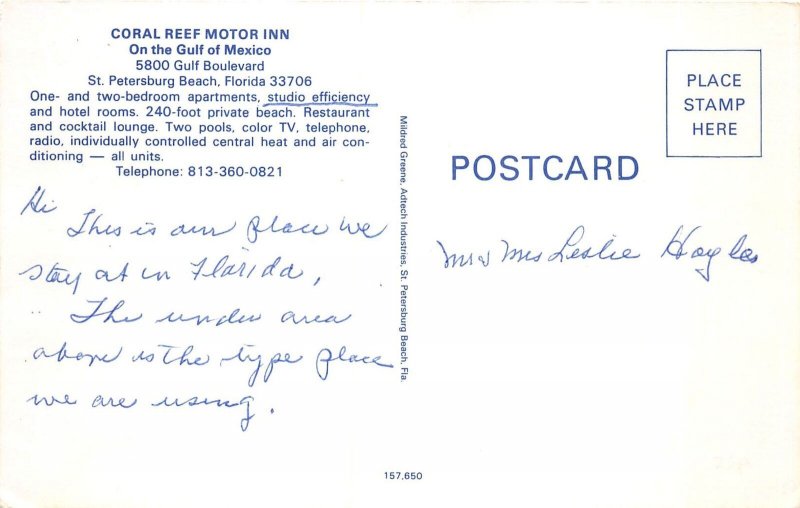 CORAL REEF MOTOR INN
On the Gulf of Mexico
5800 Gulf Boulevard
St. Petersburg Beach, Florida 33706
One- and two-bedroom apartments, studio efficiency
and hotel rooms. 240-foot private beach. Restaurant
and cocktail lounge. Two pools, color TV, telephone,
radio, individually controlled central heat and air con-
ditioning — all units.
Telephone: 813-360-0821
Hi
This is our place we
stay at in Florida,
The under area
above is the type place
we are using.
Mildred Greene, Adtech Industries, St. Petersburg Beach, Fla.
PLACE
STAMP
HERE
POSTCARD
Mr & Mrs Leslie
157,650